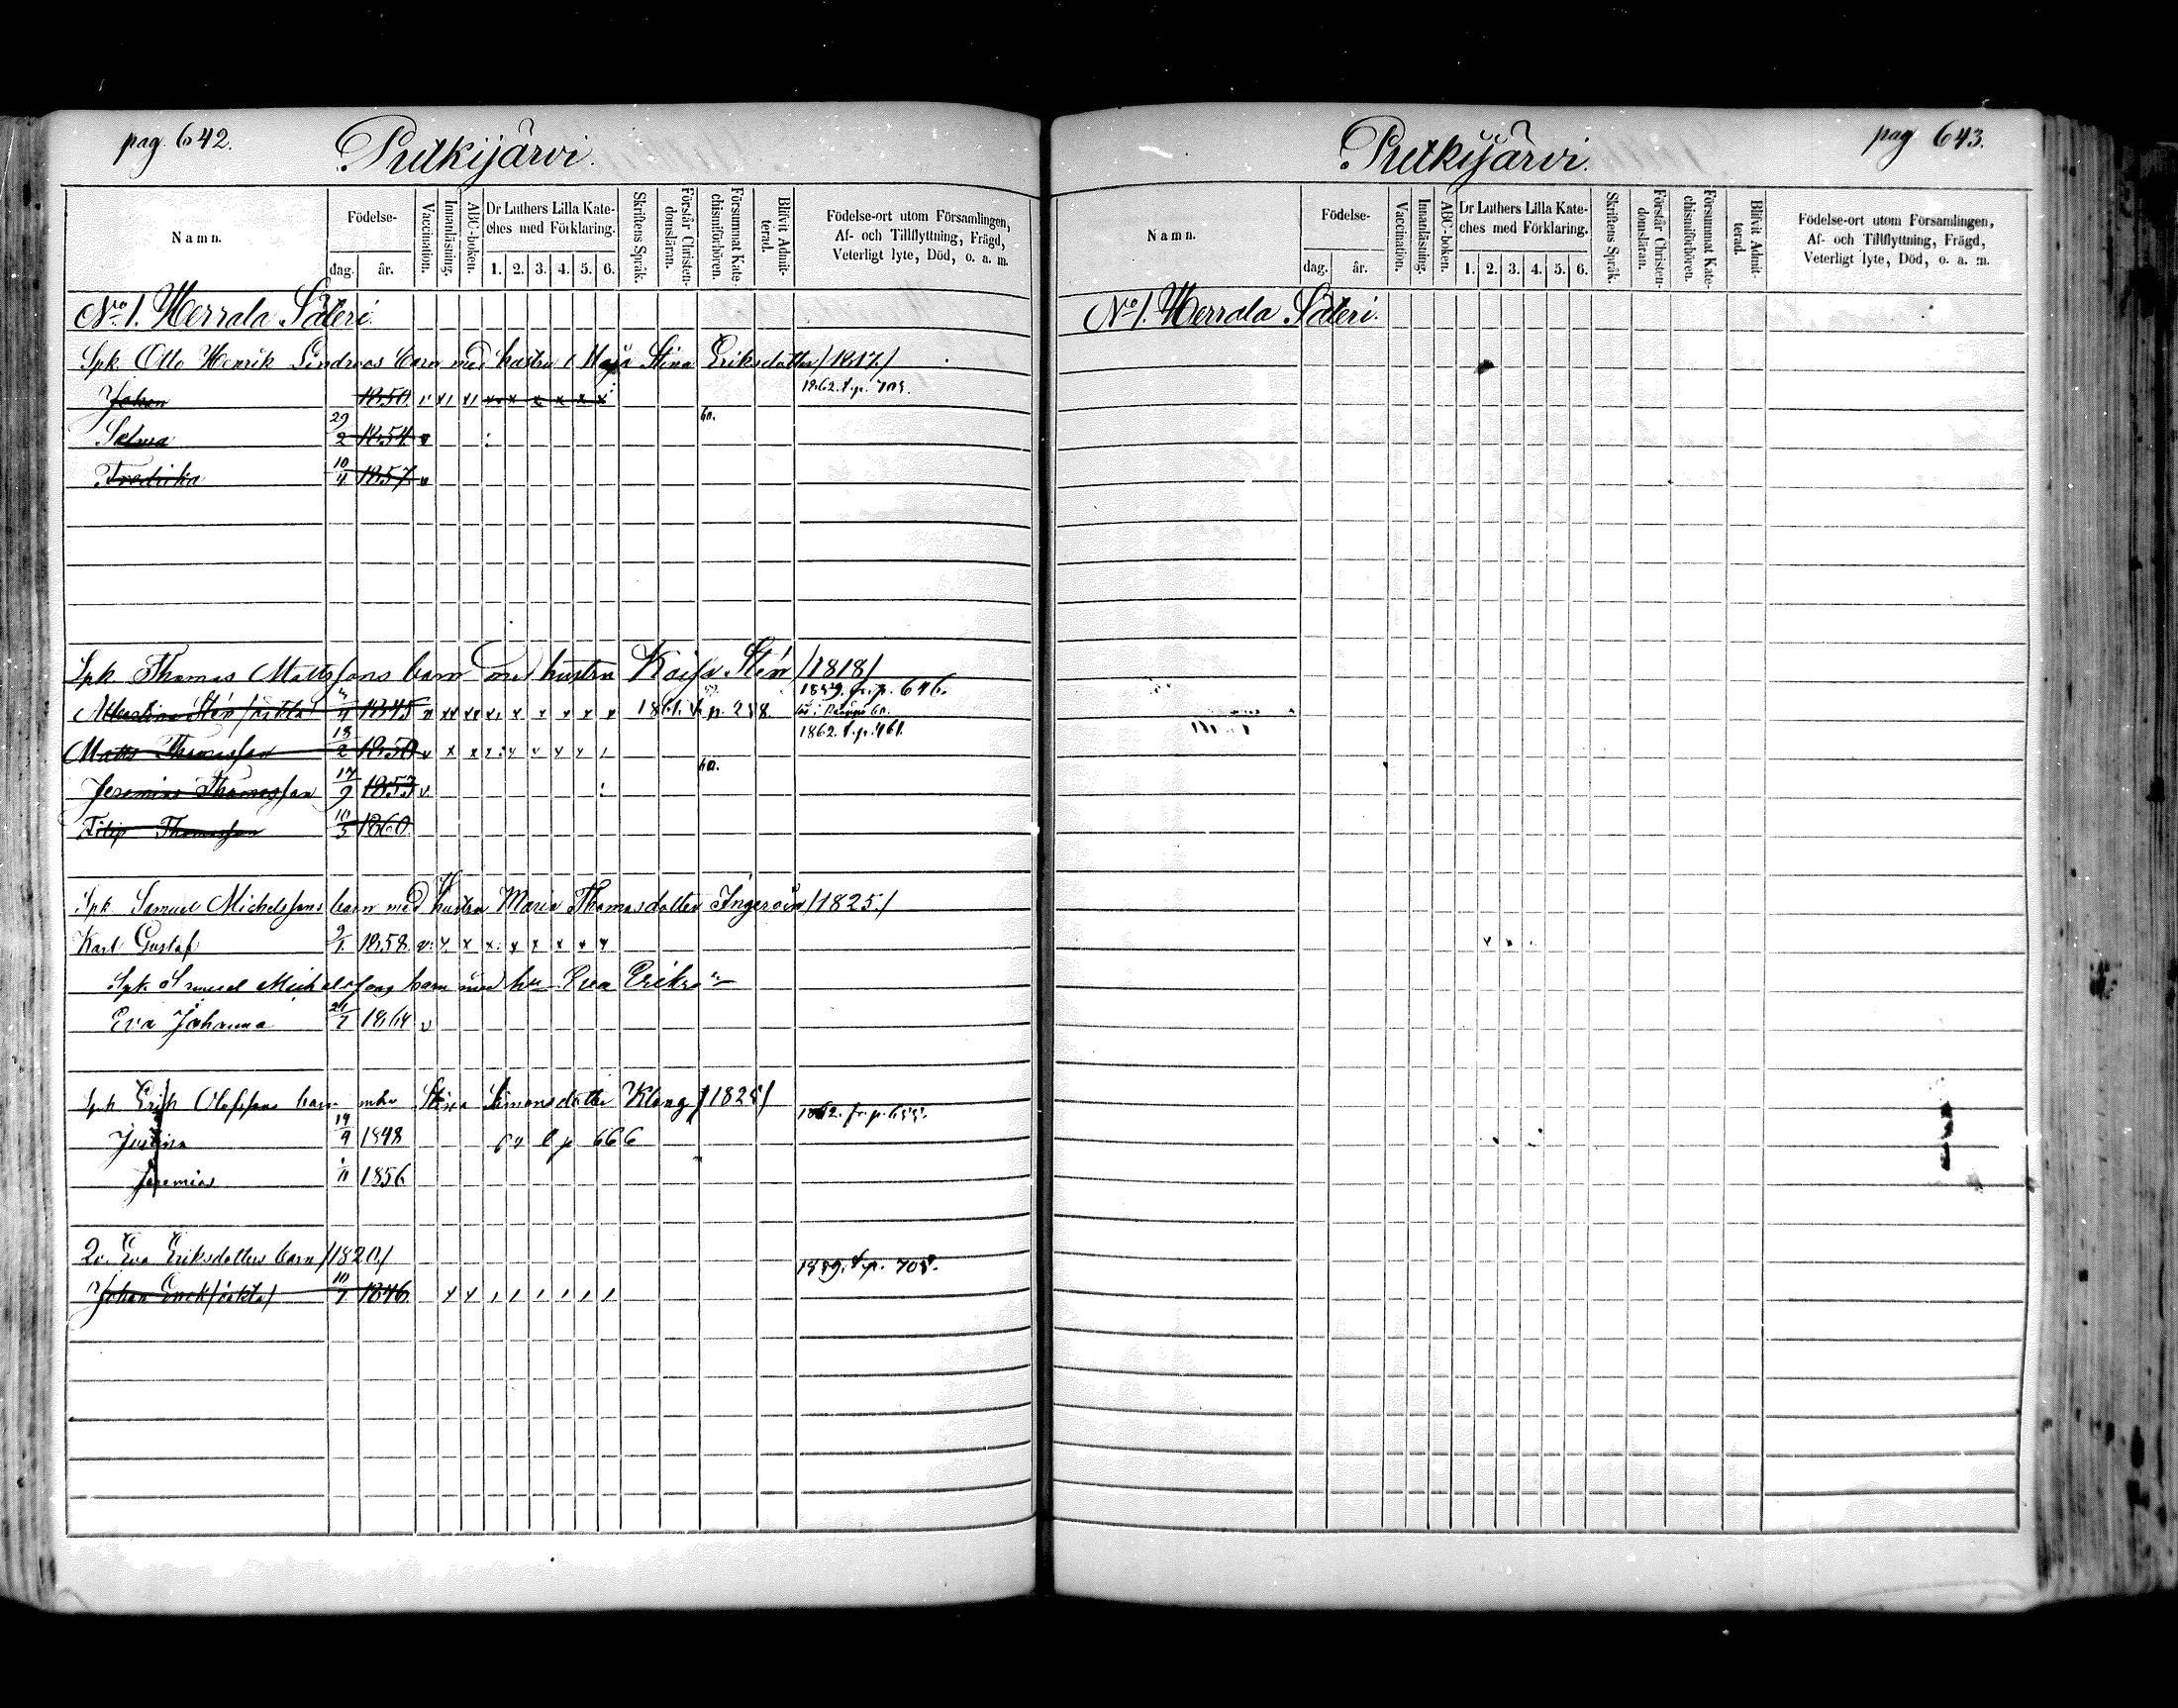 pag. 642.
Putkijärvi.
Namn.
Födelse-
dag.
år.
Vaccination.
Innanläsning.
ABC-boken.
Dr Luthers Lilla Kate-
ches med Förklaring.
1. 2. 3. 4. 5. 6.
Skriftens Språk.
Förstår Christen-
domsläran.
Försummat Kate-
chismiförhören.
Blifvit Admit-
terad.
Födelse-ort utom Församlingen,
Af- och Tillflyttning, Frägd,
Veterligt lyte, Död, o. a. m.
No 1. Herrala Säteri.
Spk. Otto Henrik Lindroos barn med hustru Maja Stina Eriksdotter /1817/
Johan 1850 1862. t. p. 703.
Selma 29/2 1854 60.
Fredrika 10/4 1857
Spk Thomas Mattssons barn med hustru Kaisa Stén /1818/
1859. fr. p. 646.
Stén /oäkta/ 1845 1861. p. 258.
Matts Thomasson 13/2 1850 1862. t. p. 461.
Jeremias Thomasson 17/9 1853 60.
Filip Thomasson 10/5 1860
Spk. Samuel Michelssons barn med hustru Maria Thomasdotter Ingeroin /1825/
Karl Gustaf 9/1 1858.
Spk. Samuel Michelssons barn med hu Eva Eriks
Eva Johanna 21/7 1864
Spk Erik Olofssons barn mhu Stina Simonsdotter Klang /1825/
1862. fr. p. 655.
Justina 14/9 1848 p 666
Jeremias 1/11 1856
Qv. Eva Eriksdotters barn /1820/
1859. t. p. 705.
Johan Enok /oäkta/ 10/7 1846
pag 643.
Putkijärvi.
Namn.
Födelse-
dag.
år.
Vaccination.
Innanläsning.
ABC-boken.
Dr Luthers Lilla Kate-
ches med Förklaring.
1. 2. 3. 4. 5. 6.
Skriftens Språk.
Förstår Christen-
domsläran.
Försummat Kate-
chismiförhören.
Blifvit Admit-
terad.
Födelse-ort utom Församlingen,
Af- och Tillflyttning, Frägd,
Veterligt lyte, Död, o. a. m.
No 1. Herrala Säteri.